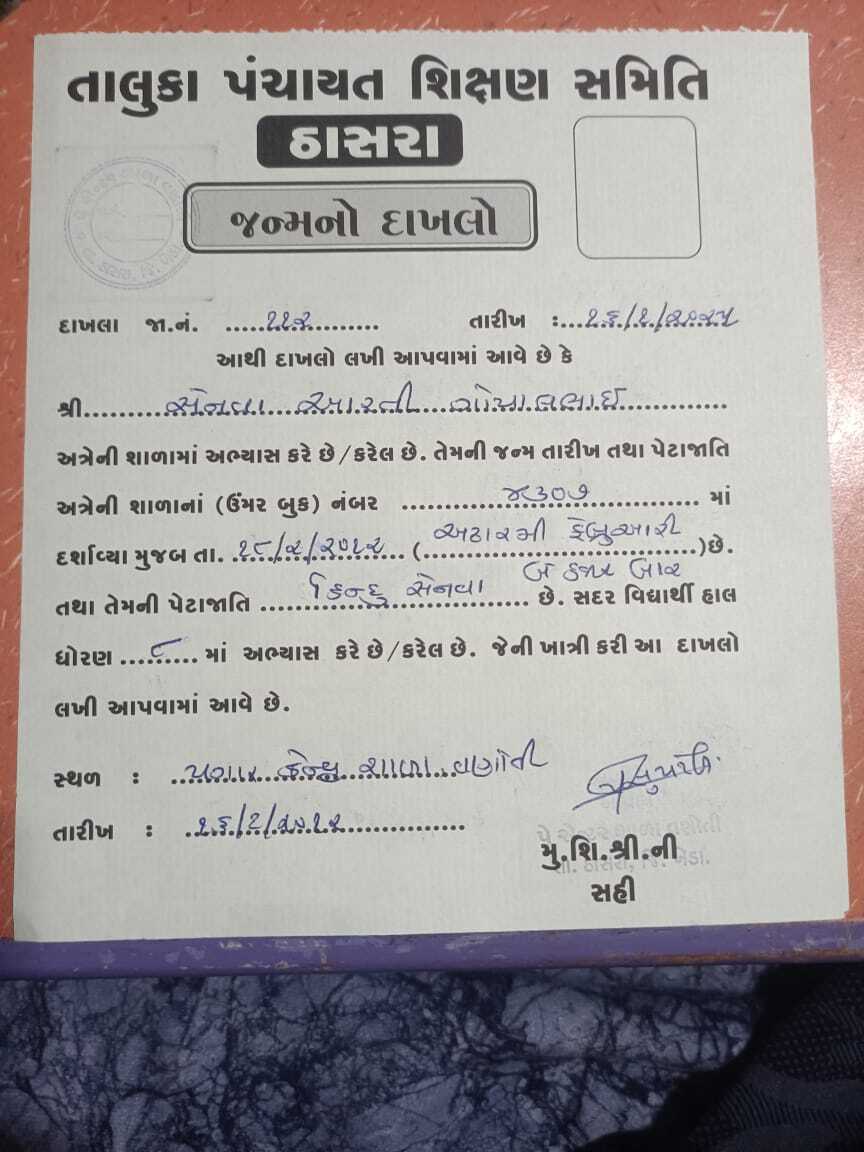 તાલુકા પંચાયત શિક્ષણ સમિતિ
ઠાસરા
જન્મનો દાખલો
દાખલા જા.નં. .....૧૧૨.......... તારીખ :...૧૬/૧/૨૦૨૫
આથી દાખલો લખી આપવામાં આવે છે કે
શ્રી..........સેનવા...આરતી....ગોપાલભાઈ.............
અત્રેની શાળામાં અભ્યાસ કરે છે/કરેલ છે. તેમની જન્મ તારીખ તથા પેટાજાતિ
અત્રેની શાળાનાં (ઉંમર બુક) નંબર ..........૪૩૦૭.............. માં
દર્શાવ્યા મુજબ તા. .૧૮/૨/૨૦૧૨... (અઢારમી ફેબ્રુઆરી બે હજાર બાર)છે.
તથા તેમની પેટાજાતિ .....હિન્દુ સેનવા..... છે. સદર વિદ્યાર્થી હાલ
ધોરણ ....૮..... માં અભ્યાસ કરે છે/કરેલ છે. જેની ખાત્રી કરી આ દાખલો
લખી આપવામાં આવે છે.
સ્થળ : ..પગાર કેન્દ્ર શાળા વણોતી
તારીખ : .૧૬/૧/
મુ.શિ.શ્રી.ની
સહી